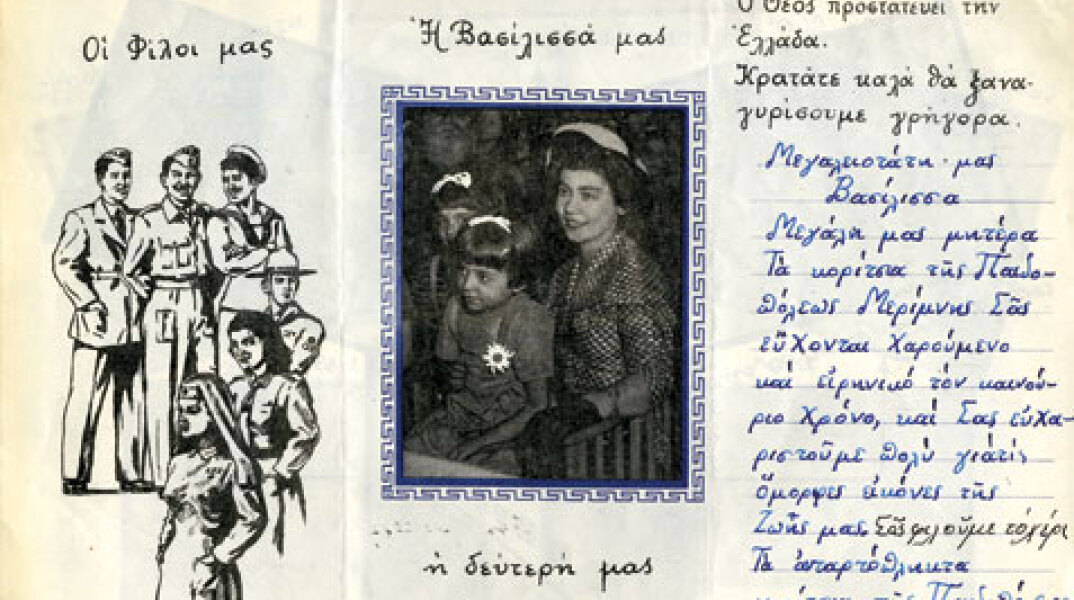 Οἱ Φίλοι μας
Ἡ Βασίλισσά μας
ἡ δεύτερή μας
Ὁ Θεός προστατεύει τήν
Ἑλλάδα.
Κρατᾶτε καλά θά ξανα-
γυρίσουμε γρήγορα.
Μεγαλειοτάτη μας
Βασίλισσα
Μεγάλη μας μητέρα
Τά κορίτσια τῆς Παιδο-
πόλεως Μερίμνης Σᾶς
εὔχονται χαρούμενο
καί εἰρηνικό τόν καινού-
ριο Χρόνο, καί Σας εὐχα-
ριστοῦμε πολύ γιά τίς
ὄμορφες εἰκόνες τῆς
Ζωῆς μας. Σᾶς φιλοῦμε τό χέρι
Τά ἀνταρτόπληκτα